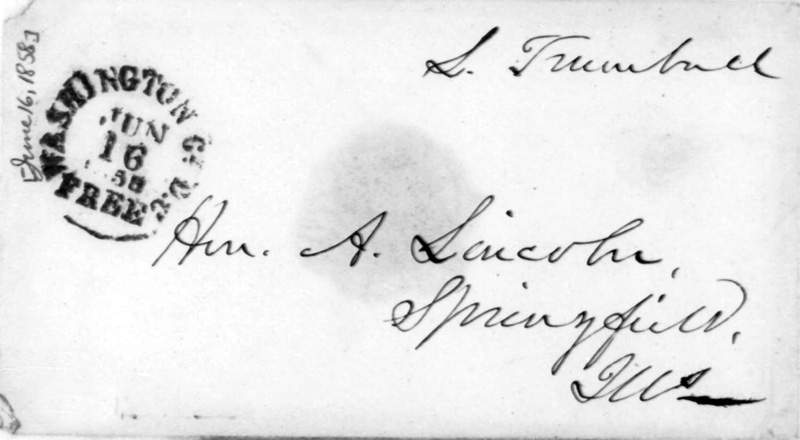 [June 16, 1858]
WASHINGTON CY. D.C.
JUN
16
58
FREE
L. Trumbull
Hon. A. Lincoln,
Springfield,
Ills